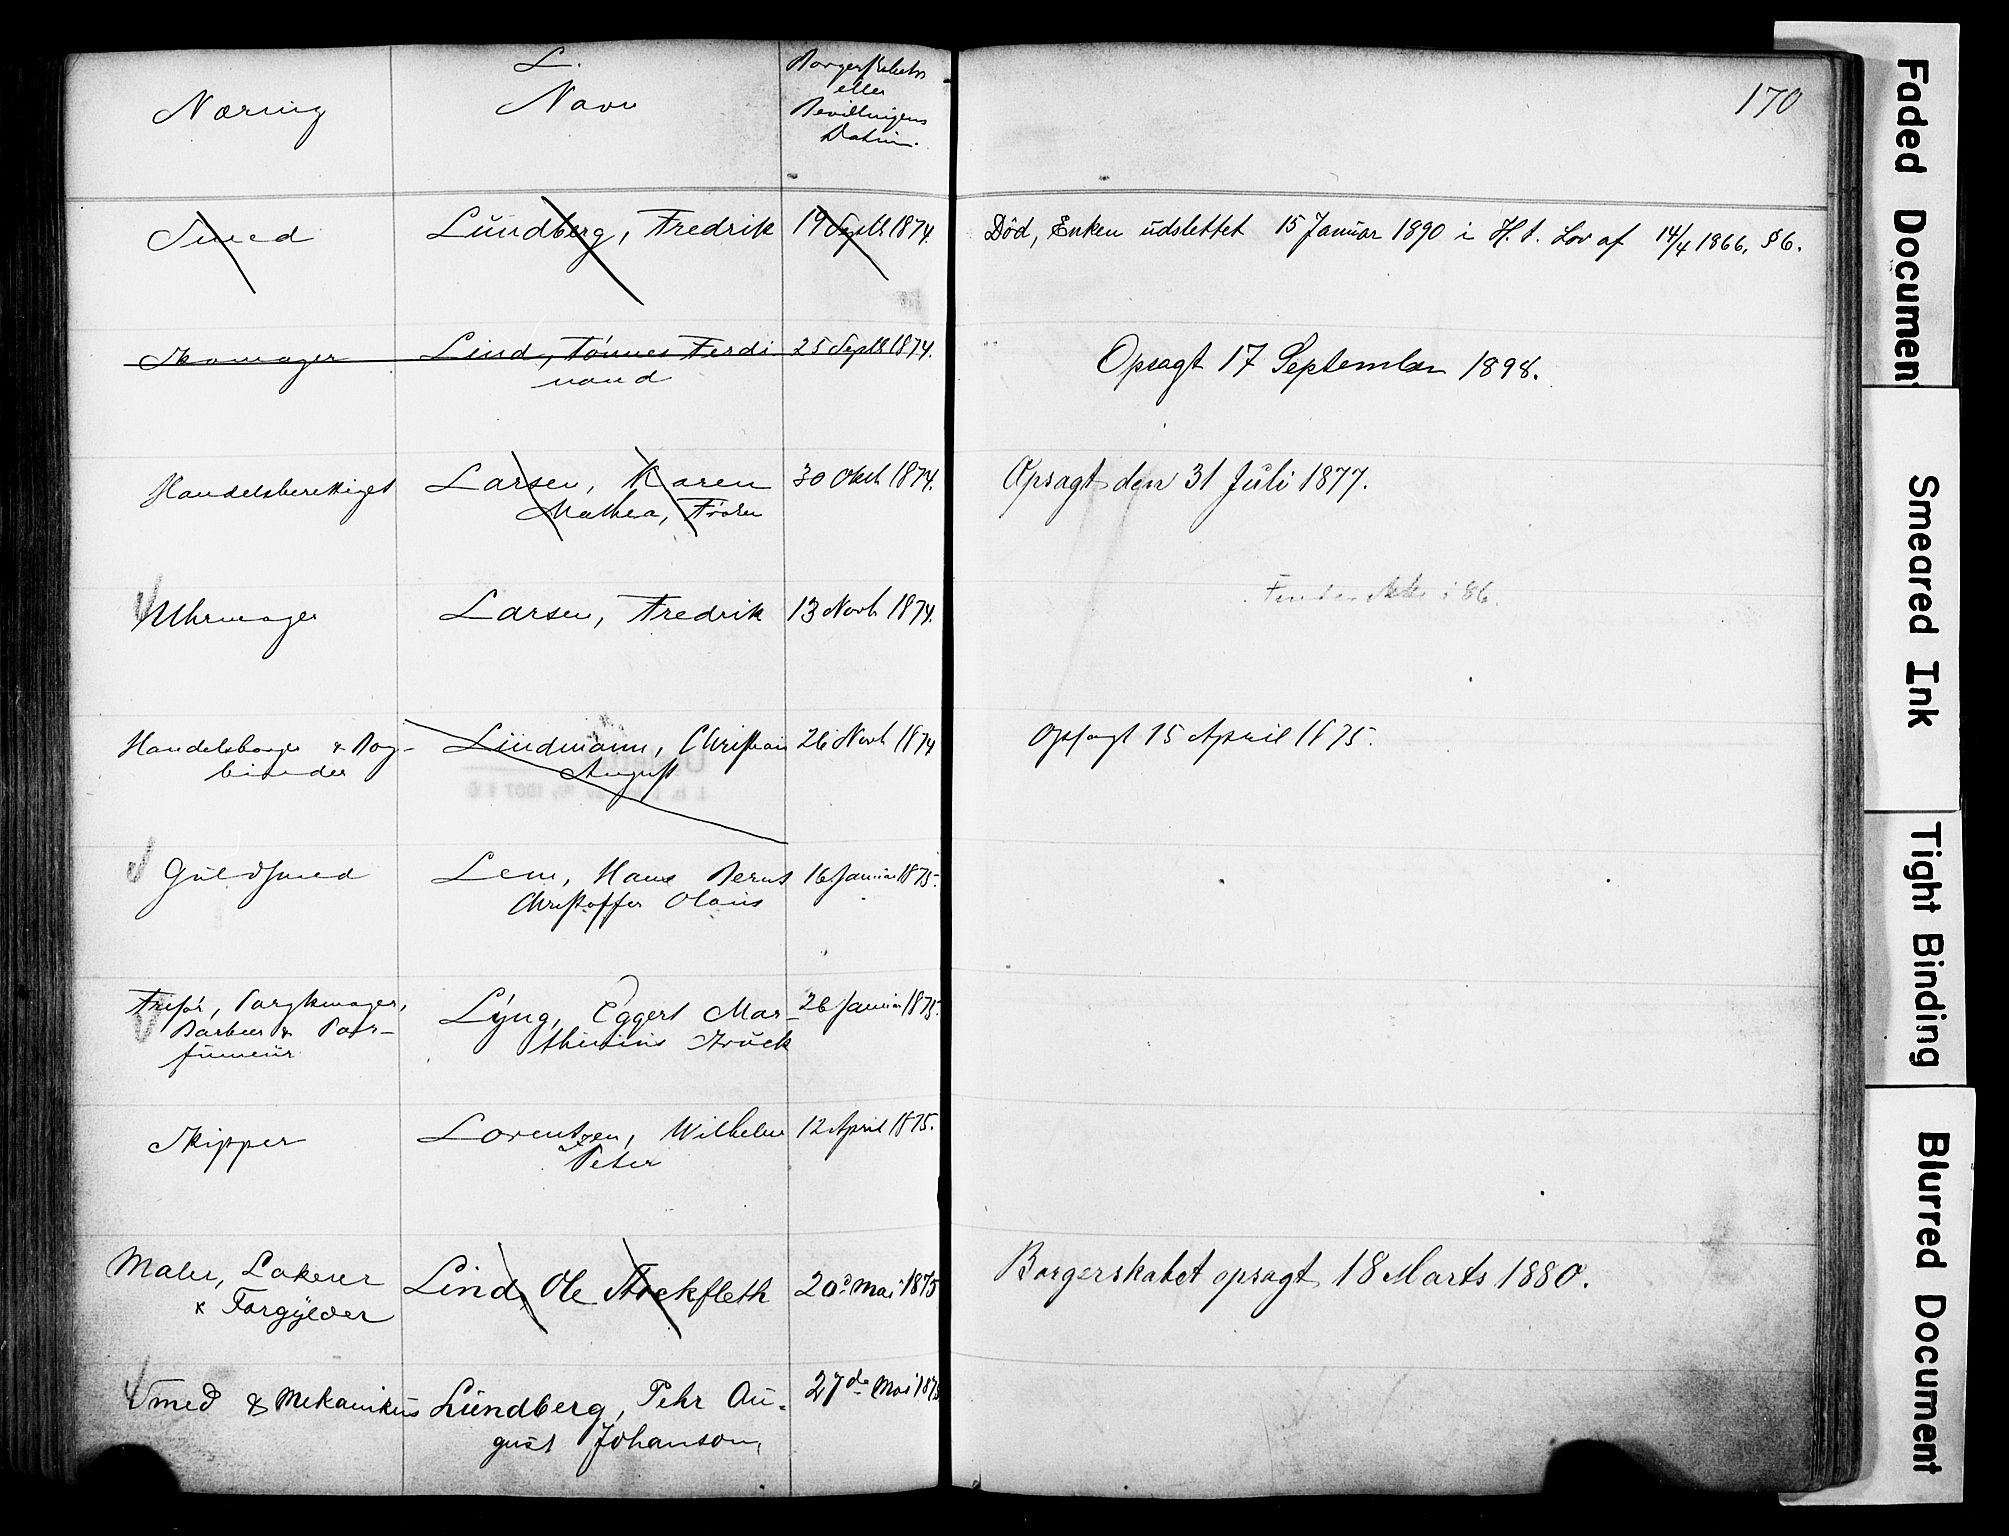 L.
Næring
Navn
Borgerskabets
eller
Bevillingens
Datum.
170
Smed
Lundberg, Fredrik
19 Septb 1874.
Död, Enken udslettet 15 Januar 1890 i H. t. Lov af 14/4 1866, § 6.
Skomager
Lind, Tönnes Ferdi
nand
25 Septb 1874.
Opsagt 17 September 1898.
Handelsberettiget
Larsen, Karen
Mathea, Fröken
30 Octb 1874.
Opsagt den 31 Juli 1877.
Uhrmager
Larsen, Fredrik
13 Novb 1874.
Findes ikke i 86.
Handelsborger & Bog-
binder
Lindmann, Christian
August
26 Novb 1874
Opsagt 15 April 1875.
Guldsmed
Lem, Hans Bernt
Christoffer Olaus
16 Januar 1875.
Frisör, Parykmager,
Barbeer & Par-
fumeur
Lyng, Eggert Mar-
thinius Struck
26 Januar 1875.
Skipper
Lorentzen, Wilhelm
Peter
12 April 1875.
Maler, Lakerer
& Forgylder
Lind, Ole Stockfleth
20de Mai 1875
Borgerskabet opsagt 18 Marts 1880.
Smed & Mekanikus
Lundberg, Pehr Au-
gust Johanson,
27de Mai 1875
Faded Document
Smeared Ink
Tight Binding
Blurred Document